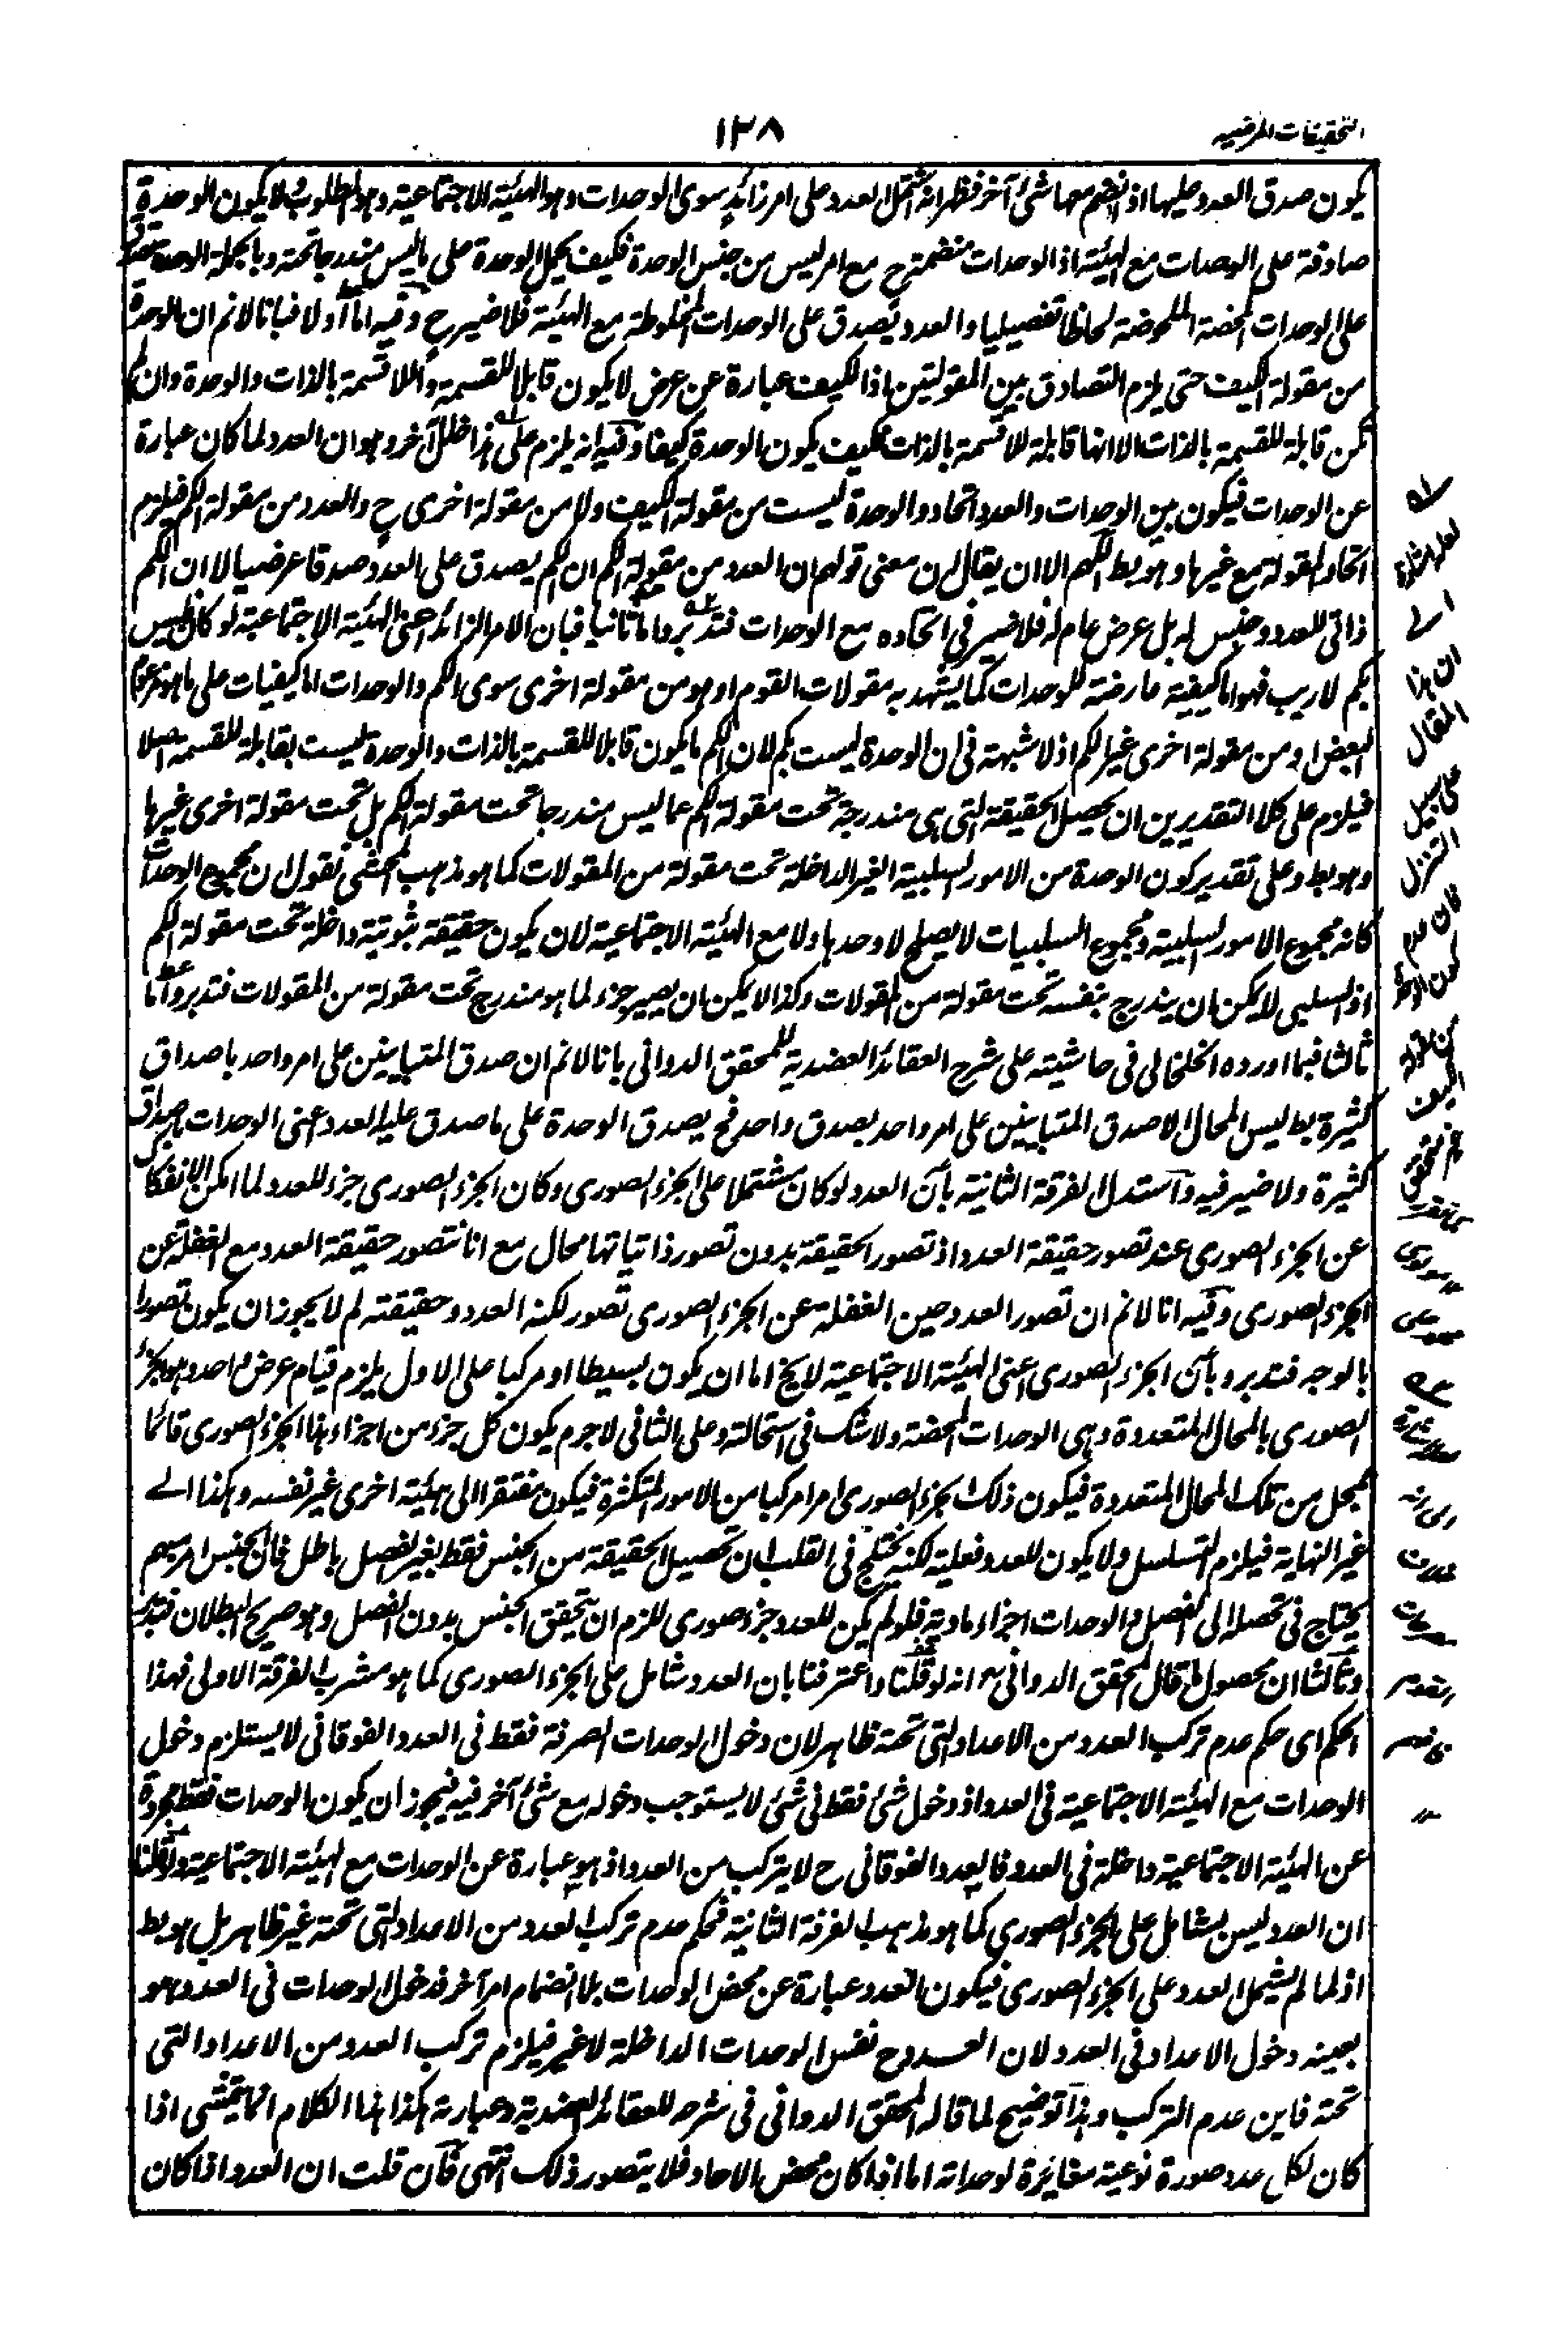 التحقيقات المرضيه
١٣٨
يكون صدق العدد عليها اذا انضم معها شئ آخر فظهر انه اشتمل العدد على امر زائد سوى الوحدات وهو الهيئة الاجتماعية وهو المطلوب ولا يكون الوحدة
صادقة على الوحدات مع الهيئة اذ الوحدات منضمة ح مع امر ليس من جنس الوحدة فكيف يحمل الوحدة على ما ليس مندرجا تحته وبالجملة الوحدة تصدق
على الوحدات المحضة الملحوظة لحاظا تفصيليا والعدد يصدق على الوحدات المخلوطة مع الهيئة فلا ضير ح وفيه اما اولا فبانا لا نم ان الوحدة
من مقولة الكيف حتى يلزم التصادق بين المقولتين اذ الكيف عبارة عن عرض لا يكون قابلا للقسمة واللاقسمة بالذات والوحدة وان لم
تكن قابلة للقسمة بالذات الا انها قابلة للاقسمة بالذات فكيف يكون الوحدة كيفا وفيه انه يلزم على هذا خلل آخر وهو ان العدد لما كان عبارة
عن الوحدات فيكون بين الوحدات والعدد اتحاد والوحدة ليست من مقولة الكيف ولا من مقولة اخرى ح والعدد من مقولة الكم فيلزم
اتحاد المقولة مع غيرها وهو بط اللهم الا ان يقال ان معنى قولهم ان العدد من مقولة الكم ان الكم يصدق على العدد صدقا عرضيا لا ان الكم
ذاتي للعدد وجنس له بل عرض عام له فلا ضير في اتحاده مع الوحدات فتدبر واما ثانيا فبان الامر الزائد اعنى الهيئة الاجتماعية لو كان ليس
بكم لا ريب فهو اما كيفية عارضة للوحدات كما يشهد به مقولات القوم او هو من مقولة اخرى سوى الكم والوحدات اما كيفيات على ما هو مزعوم
البعض او من مقولة اخرى غير الكم اذ لا شبهة فى ان الوحدة ليست بكم لان الكم ما يكون قابلا للقسمة بالذات والوحدة ليست بقابلة للقسمة اصلا
فيلزم على كلا التقديرين ان يحصل الحقيقة التى هى مندرجة تحت مقولة الكم عما ليس مندرجا تحت مقولة الكم بل تحت مقولة اخرى غيرها
وهو بط وعلى تقدير كون الوحدة من الامور السلبية الغير الداخلة تحت مقولة من المقولات كما هو مذهب المحشى نقول ان مجموع الوحدات
كانه مجموع الامور السلبية ومجموع السلبيات لا يصلح لا وحدها ولا مع الهيئة الاجتماعية لان يكون حقيقة ثبوتية داخلة تحت مقولة الكم
اذ السلبى لا يمكن ان يندرج بنفسه تحت مقولة من المقولات وكذا لا يمكن ان يصير جزء لما هو مندرج تحت مقولة من المقولات فتدبر واما
ثالثا فبما اورده الخلخالى فى حاشيته على شرح العقائد العضدية للمحقق الدوانى بانا لا نم ان صدق المتباينين على امر واحد باصداق
كثيرة بط ليس المحال الا صدق المتباينين على امر واحد بصدق واحد فح يصدق الوحدة على ما صدق عليه العدد اعنى الوحدات باصداق
كثيرة ولا ضير فيه واستدل الفرقة الثانية بأن العدد لو كان مشتملا على الجزء الصورى وكان الجزء الصورى جزء للعدد لما امكن الانفكاك
عن الجزء الصورى عند تصور حقيقة العدد اذ تصور الحقيقة بدون تصور ذاتياتها محال مع انا نتصور حقيقة العدد مع الغفلة عن
الجزء الصورى وفيه انا لا نم ان تصور العدد حين الغفلة عن الجزء الصورى تصور لكنه العدد وحقيقته لم لا يجوز ان يكون تصورا
بالوجه فتدبر وبأن الجزء الصورى اعنى الهيئة الاجتماعية لا يخ اما ان يكون بسيطا او مركبا على الاول يلزم قيام عرض واحد وهو الجزء
الصورى بالمحال المتعددة وهى الوحدات المحضة ولا شك فى استحالته وعلى الثانى لا جرم يكون كل جزء من اجزاء هذا الجزء الصورى قائما
بمحل من تلك المحال المتعددة فيكون ذلك الجزء الصورى امرا مركبا من الامور المتكثرة فيكون مفتقرا الى هيئة اخرى غير نفسه وهكذا الى
غير النهاية فيلزم التسلسل ولا يكون للعدد فعلية لكنه يختلج فى القلب ان تحصيل الحقيقة من الجنس فقط بغير الفصل باطل فان الجنس امر مبهم
يحتاج فى تحصله الى الفصل والوحدات اجزاء مادية فلو لم يكن للعدد جزء صورى للزم ان يتحقق الجنس بدون الفصل وهو صريح البطلان فتدبر
وثالثا ان محصول ما قال المحقق الدوانى انه لو قلنا واعترفنا بان العدد شامل على الجزء الصورى كما هو مشرب الفرقة الاولى فهذا
الحكم اى حكم عدم تركب العدد من الاعداد التى تحته ظاهر لان دخول الوحدات الصرفة فقط فى العدد الفوقانى لا يستلزم دخول
الوحدات مع الهيئة الاجتماعية فى العدد اذ دخول شئ فقط فى شئ لا يستوجب دخوله مع شئ آخر فيه فيجوز ان يكون الوحدات فقط مجردة
عن الهيئة الاجتماعية داخلة فى العدد فالعدد الفوقانى ح لا يتركب من العدد اذ هو عبارة عن الوحدات مع الهيئة الاجتماعية ولو قلنا
ان العدد ليس بشامل على الجزء الصورى كما هو مذهب الفرقة الثانية فحكم عدم تركب العدد من الاعداد التى تحته غير ظاهر بل هو بط
اذ لما لم يشمل العدد على الجزء الصورى فيكون العدد عبارة عن محض الوحدات بلا انضمام امر آخر فدخول الوحدات فى العدد هو
بعينه دخول الاعداد فى العدد لان العدد ح نفس الوحدات الداخلة لا غير فيلزم تركب العدد من الاعداد التى
تحته فاين عدم التركب وهذا توضيح لما قاله المحقق الدوانى فى شرحه للعقائد العضدية وعبارته هكذا هذا الكلام انما يتمشى اذا
كان لكل عدد صورة نوعية مغايرة لوحداته اما اذا كان محض الاحاد فلا يتصور ذلك انتهى فان قلت ان العدد اذا كان
ان هذا
المقال
على سبيل
التنزل